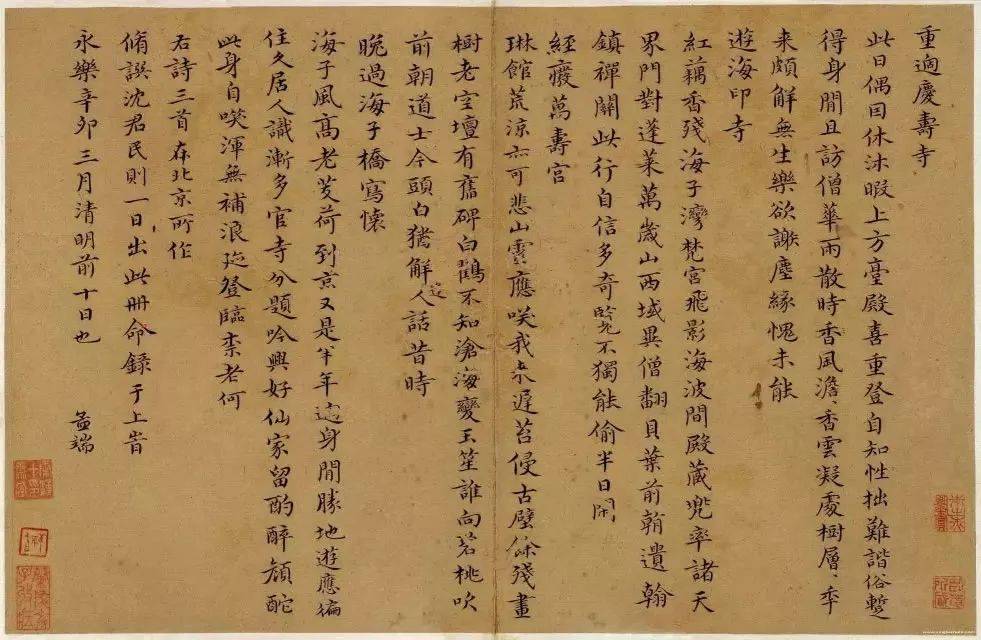 重適慶壽寺
此日偶因休沐暇上方臺殿喜重登自知性拙難諧俗蹔
得身閒且訪僧華雨散時香風澹〻香雲凝處樹層〻年
来頗解無生樂欲謝塵緣愧未能
遊海印寺
紅藕香殘海子灣梵宮飛影海波間殿藏兜率諸天
界門對蓬萊萬歲山西域異僧翻貝葉前朝遺翰
鎮禪關此行自信多奇覽不獨能偷半日閑
經癈萬壽宮
琳館荒涼亦可悲山靈應咲我来遲苔侵古壁餘殘畫
樹老空壇有舊碑白鸖不知滄海變玉笙誰向碧桃吹
前朝道士今頭白猶解逢人話昔時
晚過海子橋寫懷
海子風髙老芰荷到京又是半年過身閒勝地遊應徧
住久居人識漸多官寺分題吟興好仙家留酌醉顏酡
此身自嘆渾無補浪跡登臨柰老何
右詩三首在北京所作
脩譔沈君民則一日出此冊命錄于上旹
永樂辛卯三月清明前十日也　孟端